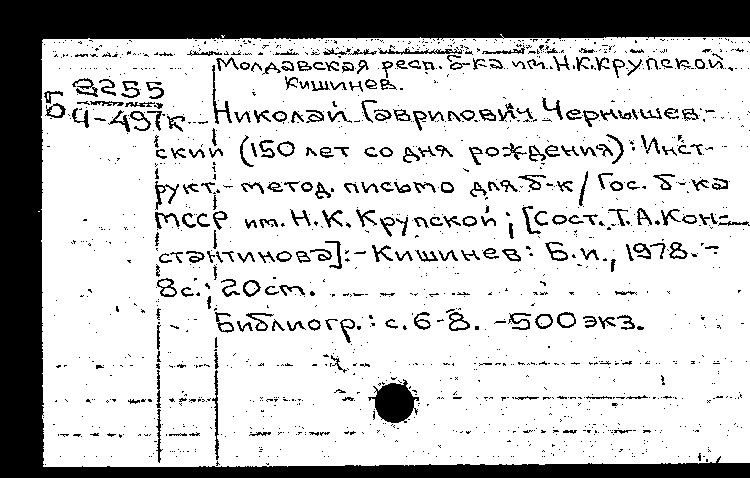 Молдавская респ. б-ка им. Н.К.Крупской.
Кишинев.
Б 8255
Ч-497к
Николай Гаврилович Чернышев-
ский (150 лет со дня рождения): Инст-
рукт.-метод. письмо для б-к / Гос. б-ка
МССР им. Н.К. Крупской; [Сост. Т.А. Кон-
стантинова].- Кишинев: Б.и., 1978.-
8с.; 20см.
Библиогр.: с. 6-8. -500 экз.